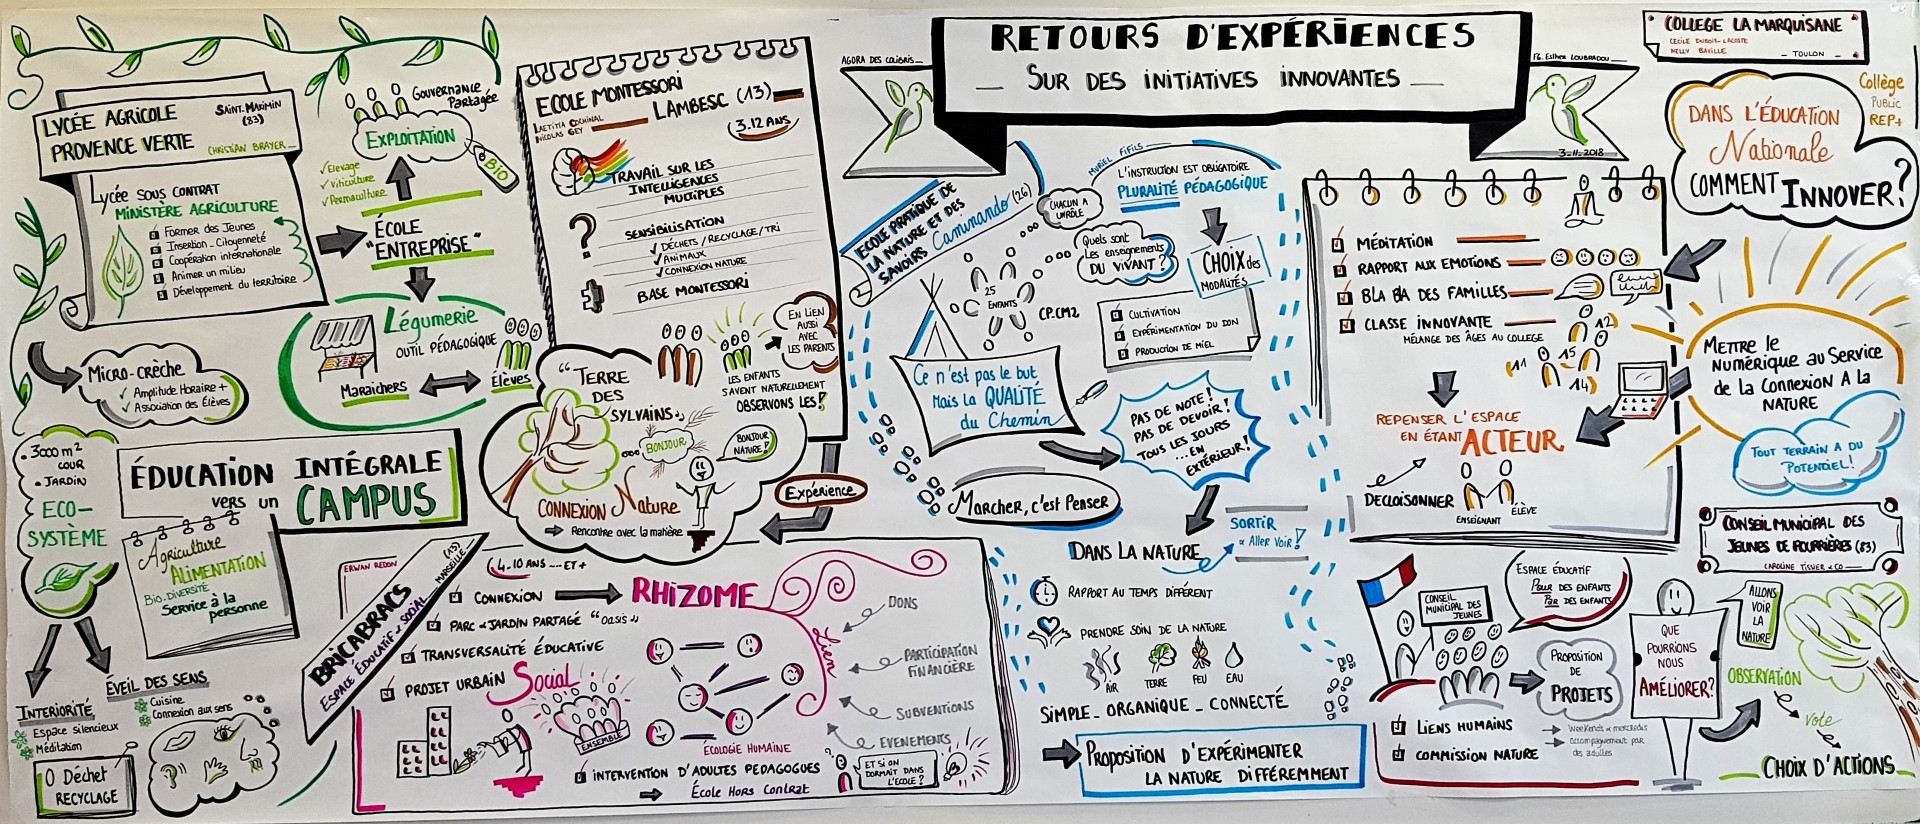 RETOURS D'EXPÉRIENCES
SUR DES INITIATIVES INNOVANTES
AGORA DES COLIBRIS
FG. Esther LOUBRADOU
3.11.2018
LYCÉE AGRICOLE
PROVENCE VERTE
SAINT-MAXIMIN
(83)
CHRISTIAN BRAYER
Lycée SOUS CONTRAT
MINISTÈRE AGRICULTURE
Former des Jeunes
Insertion - Citoyenneté
Coopération internationale
Animer un milieu
Développement du territoire
Gouvernance
Partagée
EXPLOITATION
BIO
Elevage
Viticulture
Permaculture
ÉCOLE
"ENTREPRISE"
Légumerie
OUTIL PÉDAGOGIQUE
Maraichers
Élèves
MICRO-CRÈCHE
Amplitude Horaire +
Association des Élèves
3000 m²
COUR
JARDIN
ECO-
SYSTÈME
ÉDUCATION INTÉGRALE
VERS UN
CAMPUS
Agriculture
ALIMENTATION
Bio.DIVERSITÉ
Service à la
personne
INTERIORITÉ
Espace silencieux
Méditation
ÉVEIL DES SENS
Cuisine
Connexion aux sens
O Déchet
RECYCLAGE
ECOLE MONTESSORI
LAMBESC (13)
NICOLAS GEY
(3.12 ANS)
TRAVAIL SUR LES
INTELLIGENCES
MULTIPLES
?
SENSIBILISATION
DÉCHETS / RECYCLAGE / TRI
ANIMAUX
CONNEXION NATURE
BASE MONTESSORI
EN LIEN
AUSSI
AVEC
LES PARENTS
LES ENFANTS
SAVENT NATURELLEMENT
OBSERVONS LES !
"TERRE
DES
SYLVAINS"
BONJOUR
BONJOUR
NATURE !
CONNEXION Nature
Rencontre avec la matière
Expérience
ERWAN REDON
BRICABRACS
(13)
MARSEILLE
ESPACE ÉDUCATIF & SOCIAL
(4-10 ANS --- ET +
CONNEXION
RHIZOME
PARC & JARDIN PARTAGÉ "Oasis"
TRANSVERSALITÉ ÉDUCATIVE
PROJET URBAIN Social
ENSEMBLE
Lien
DONS
PARTICIPATION
FINANCIÈRE
SUBVENTIONS
EVENEMENTS
ECOLOGIE HUMAINE
INTERVENTION D'ADULTES PEDAGOGUES
École Hors Contrat
ET SI ON
DORMAIT DANS
L'ECOLE ?
ECOLE PRATIQUE DE
LA NATURE ET DES
SAVOIRS Caminando (26)
MURIEL FIFILS
L'INSTRUCTION EST OBLIGATOIRE
PLURALITÉ PÉDAGOGIQUE
CHACUN A
UN RÔLE
Quels sont
Les enseignements
DU VIVANT ?
CHOIX des
MODALITÉS
25
ENFANTS
CP.CM2
CULTIVATION
EXPÉRIMENTATION DU DON
PRODUCTION DE MIEL
Ce n'est pas le but
Mais la QUALITÉ
du Chemin
PAS DE NOTE !
PAS DE DEVOIR !
TOUS LES JOURS
...EN
EXTÉRIEUR !
Marcher, c'est Penser
DANS LA NATURE
SORTIR
& ALLER VOIR !
RAPPORT AU TEMPS DIFFÉRENT
PRENDRE SOIN DE LA NATURE
AIR
TERRE
FEU
EAU
SIMPLE - ORGANIQUE - CONNECTÉ
PROPOSITION D'EXPÉRIMENTER
LA NATURE DIFFÉREMMENT
COLLEGE LA MARQUISANE
CECILE DUBOIS-LACOSTE
NELLY BAVILLE
TOULON
Collège
PUBLIC
REP+
DANS L'ÉDUCATION
Nationale
COMMENT INNOVER ?
MÉDITATION
RAPPORT AUX EMOTIONS
BLA BA DES FAMILLES
CLASSE INNOVANTE
MÉLANGE DES ÂGES AU COLLEGE
12
11
15
14
REPENSER L'ESPACE
EN ÉTANT ACTEUR
DECLOISONNER
ENSEIGNANT
ÉLÈVE
METTRE le
NUMÉRIQUE AU SERVICE
de la CONNEXION A la
NATURE
TOUT TERRAIN A DU
POTENTIEL !
CONSEIL MUNICIPAL DES
JEUNES DE POURRIÈRES (83)
CAROLINE TISSIER & CO
CONSEIL
MUNICIPAL DES
JEUNES
ESPACE ÉDUCATIF
Pour DES ENFANTS
Par DES ENFANTS
PROPOSITION
DE
PROJETS
LIENS HUMAINS
COMMISSION NATURE
Weekends & mercredis
accompagnement par
des adultes
QUE
POURRIONS
NOUS
AMÉLIORER ?
ALLONS
VOIR
LA
NATURE
OBSERVATION
Vote
CHOIX D'ACTIONS